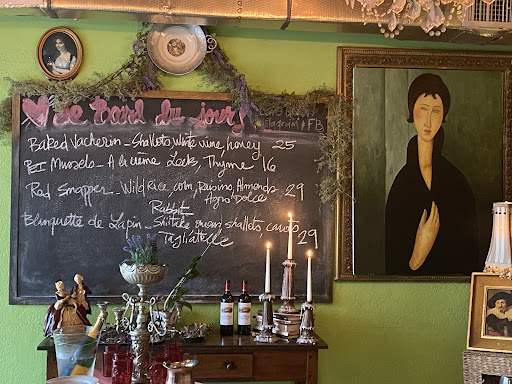 Le Bord du jour!
Instagram + FB
Baked Vacherin - Shallots white wine honey 25
PEI Mussels - A la crème Leek, Thyme 16
Red Snapper - Wild Rice corn, Raisins, Almonds 29
Agro Dolce
Rabbit
Blanquette de Lapin - Shitake cream shallots, carrots 29
Tagliatelle